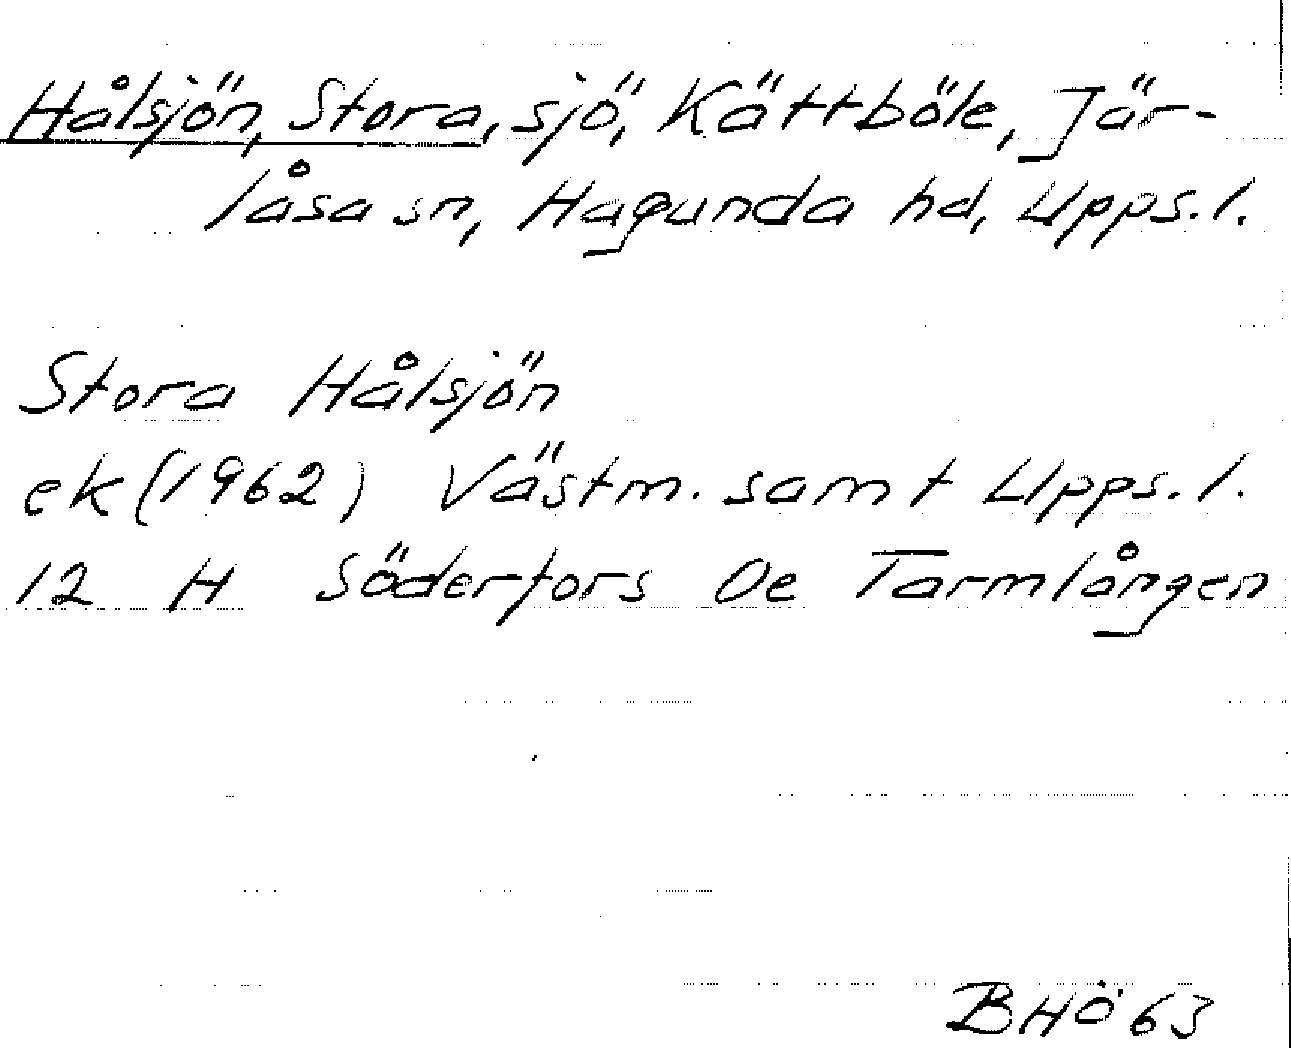 Hålsjön, Stora, sjö, Kättböle, Jär-
låsa sn, Hagunda hd, Upps. l.
Stora Hålsjön
ek (1962) Västm. samt Upps. l.
12 H Söderfors 0e Tarmlången
BHÖ 63